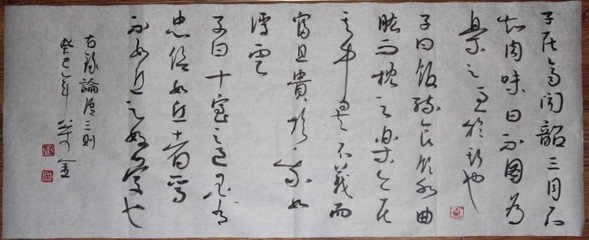 子在齊聞韶三月不
知肉味曰不圖為
樂之至於斯也
子曰飯疏食飲水曲
肱而枕之樂亦在
其中矣不義而
富且貴於我如
浮雲
子曰十室之邑必有
忠信如丘者焉
不如丘之好學也
右錄論語三則
癸巳年